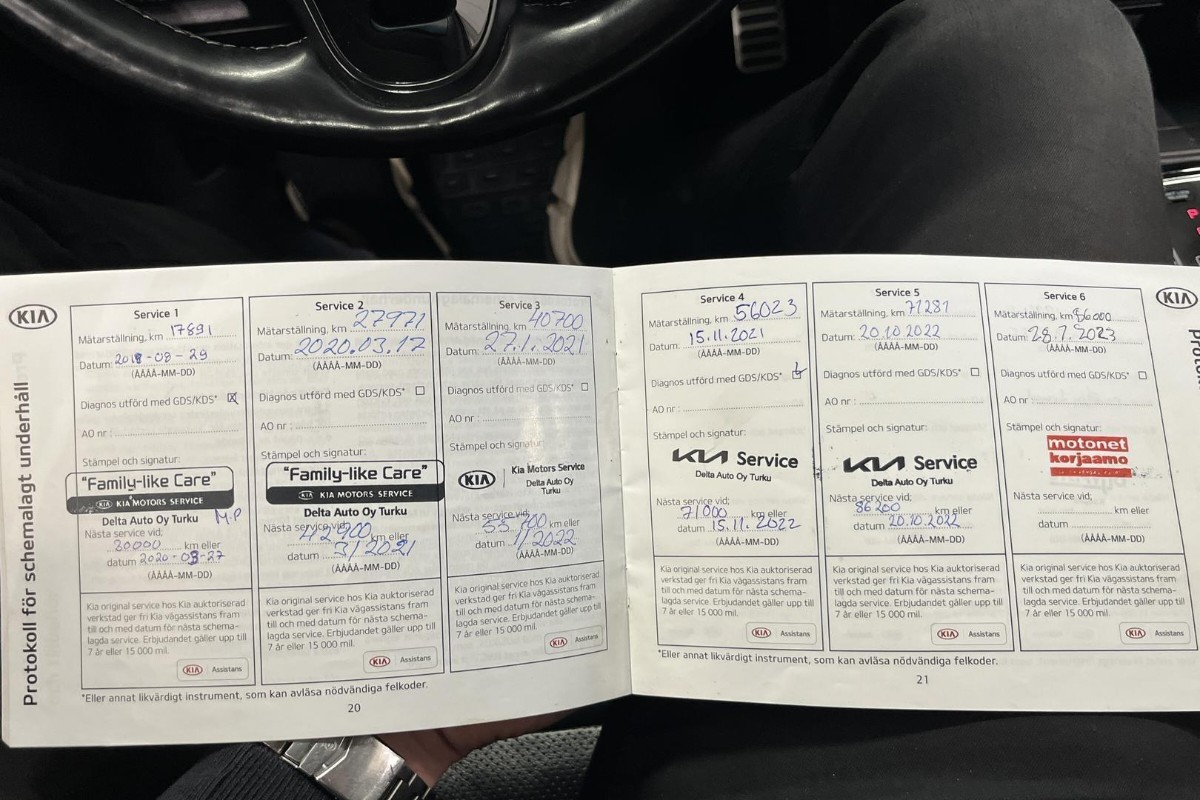 KIA
Protokoll för schemalagt underhåll
Service 1
Mätarställning, km 17891
Datum:
(ÅÅÅÅ-MM-DD)
Diagnos utförd med GDS/KDS*
AO nr :
Stämpel och signatur:
"Family-like Care"
KIA MOTORS SERVICE
Delta Auto Oy Turku M.P
Nästa service vid;
km eller
datum
(ÅÅÅÅ-MM-DD)
Kia original service hos Kia auktoriserad
verkstad ger fri Kia vägassistans fram
till och med datum för nästa schema-
lagda service. Erbjudandet gäller upp till
7 år eller 15 000 mil.
KIA Assistans
Service 2
Mätarställning, km 27971
Datum: 2020.03.17
(ÅÅÅÅ-MM-DD)
Diagnos utförd med GDS/KDS*
AO nr :
Stämpel och signatur:
"Family-like Care"
KIA MOTORS SERVICE
Delta Auto Oy Turku
Nästa service vid; 42900
km eller
datum 3/2021
(ÅÅÅÅ-MM-DD)
Kia original service hos Kia auktoriserad
verkstad ger fri Kia vägassistans fram
till och med datum för nästa schema-
lagda service. Erbjudandet gäller upp till
7 år eller 15 000 mil.
KIA Assistans
Service 3
Mätarställning, km 40700
Datum: 27.1.2021
(ÅÅÅÅ-MM-DD)
Diagnos utförd med GDS/KDS*
AO nr :
Stämpel och signatur:
KIA Kia Motors Service
Delta Auto Oy
Turku
Nästa service vid;
55700 km eller
datum 1/2022
(ÅÅÅÅ-MM-DD)
Kia original service hos Kia auktoriserad
verkstad ger fri Kia vägassistans fram
till och med datum för nästa schema-
lagda service. Erbjudandet gäller upp till
7 år eller 15 000 mil.
KIA Assistans
*Eller annat likvärdigt instrument, som kan avläsa nödvändiga felkoder.
20
KIA
Service 4
Mätarställning, km 56023
Datum: 15.11.2021
(ÅÅÅÅ-MM-DD)
Diagnos utförd med GDS/KDS*
AO nr :
Stämpel och signatur:
KIA Service
Delta Auto Oy Turku
Nästa service vid;
71000 km eller
datum 15.11.2022
(ÅÅÅÅ-MM-DD)
Kia original service hos Kia auktoriserad
verkstad ger fri Kia vägassistans fram
till och med datum för nästa schema-
lagda service. Erbjudandet gäller upp till
7 år eller 15 000 mil.
KIA Assistans
Service 5
Mätarställning, km 71281
Datum: 20.10.2022
(ÅÅÅÅ-MM-DD)
Diagnos utförd med GDS/KDS*
AO nr :
Stämpel och signatur:
KIA Service
Delta Auto Oy Turku
Nästa service vid;
86200 km eller
datum 20.10.2022
(ÅÅÅÅ-MM-DD)
Kia original service hos Kia auktoriserad
verkstad ger fri Kia vägassistans fram
till och med datum för nästa schema-
lagda service. Erbjudandet gäller upp till
7 år eller 15 000 mil.
KIA Assistans
Service 6
Mätarställning, km 86000
Datum: 28.7.2023
(ÅÅÅÅ-MM-DD)
Diagnos utförd med GDS/KDS*
AO nr :
Stämpel och signatur:
motonet
korjaamo
Nästa service vid;
km eller
datum
(ÅÅÅÅ-MM-DD)
Kia original service hos Kia auktoriserad
verkstad ger fri Kia vägassistans fram
till och med datum för nästa schema-
lagda service. Erbjudandet gäller upp till
7 år eller 15 000 mil.
KIA Assistans
*Eller annat likvärdigt instrument, som kan avläsa nödvändiga felkoder.
21
P